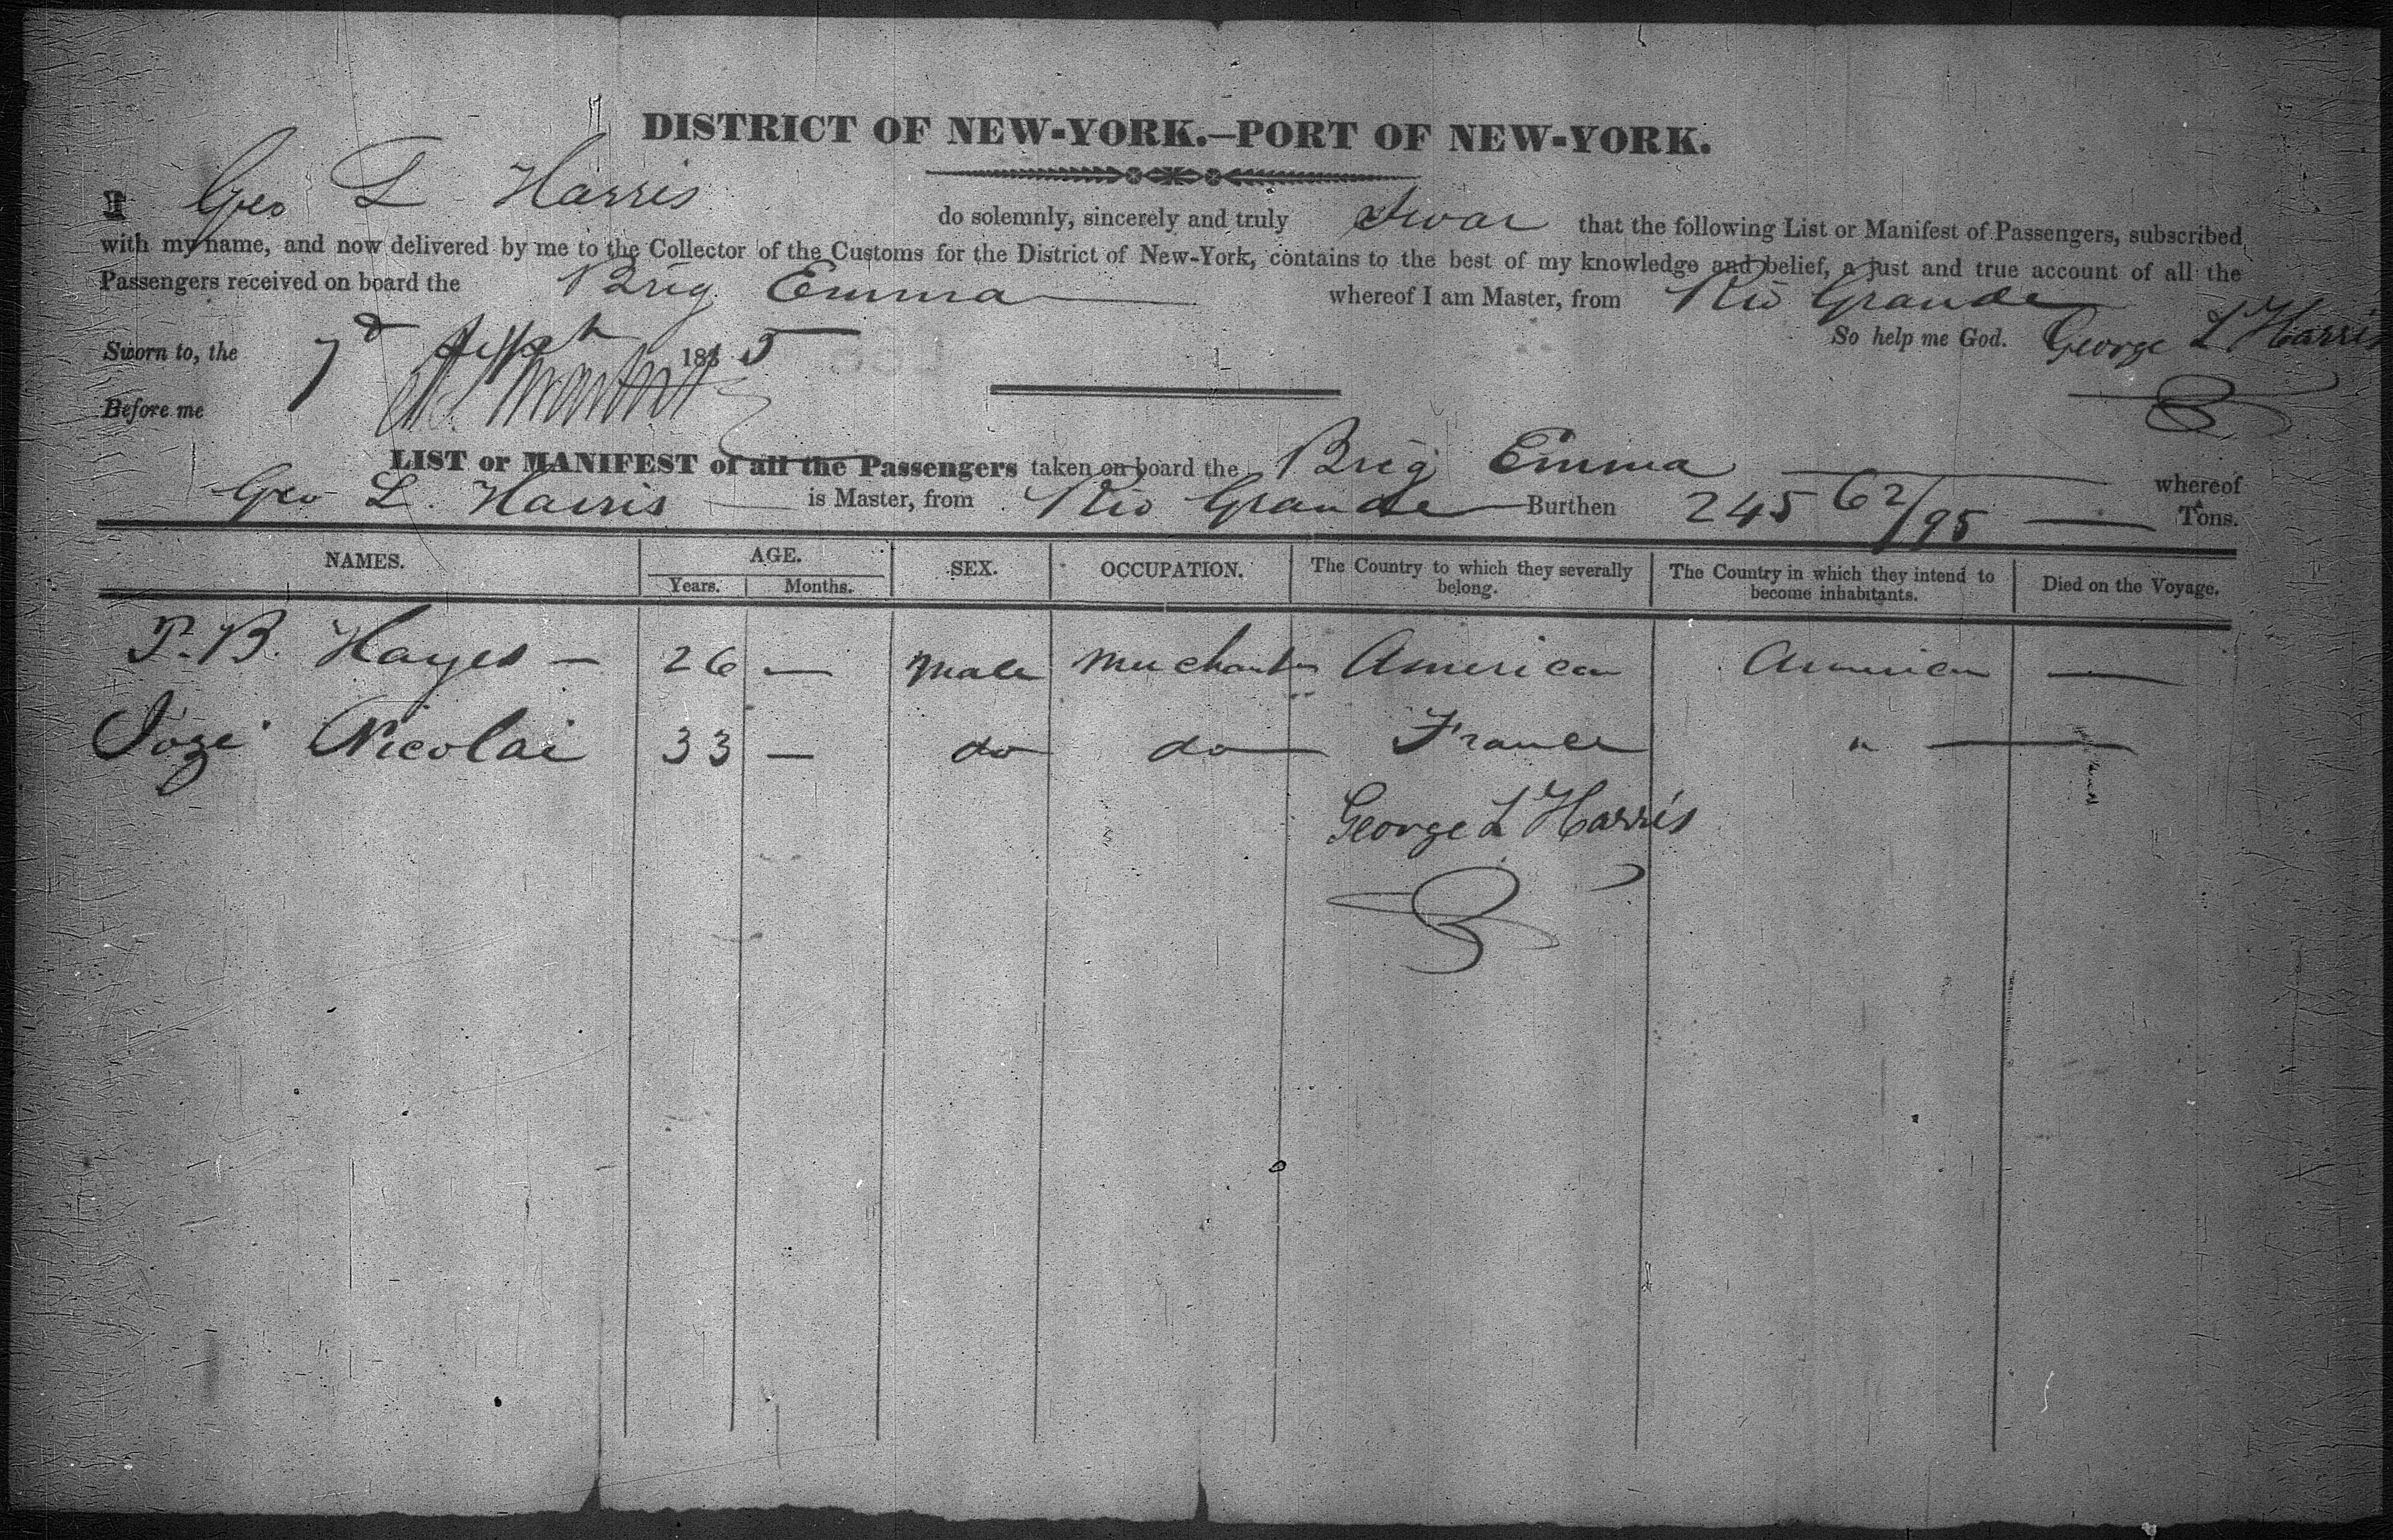 DISTRICT OF NEW-YORK.—PORT OF NEW-YORK.
I Geo L Harris do solemnly, sincerely and truly Swear that the following List or Manifest of Passengers, subscribed
with my name, and now delivered by me to the Collector of the Customs for the District of New-York, contains to the best of my knowledge and belief, a just and true account of all the
Passengers received on board the Brig Emma whereof I am Master, from Rio Grande
So help me God. George L Harris
Sworn to, the 7 Sept 185
Before me
LIST or MANIFEST of all the Passengers taken on board the Brig Emma whereof
Geo L. Harris is Master, from Rio Grande Burthen 245 62/95 Tons.
NAMES. AGE. SEX. OCCUPATION. The Country to which they severally belong. The Country in which they intend to become inhabitants. Died on the Voyage.
Years. Months.
P. B. Hayes — 26 — Male Merchant American American —
Joze Nicolai 33 — do do France " —
George L Harris